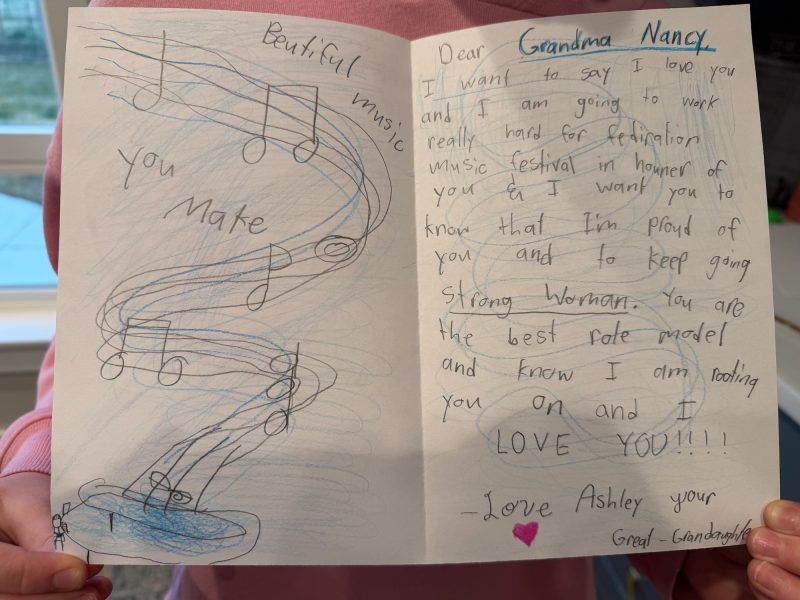 Beutiful
music
you
Make
Dear Grandma Nancy,
I want to say I love you
and I am going to work
really hard for fediration
music festival in houner of
you & I want you to
know that I'm proud of
you and to keep going
Strong Woman. You are
the best role model
and know I am rooting
you on and I
LOVE YOU!!!!
-Love Ashley your
Great-Grandaughter